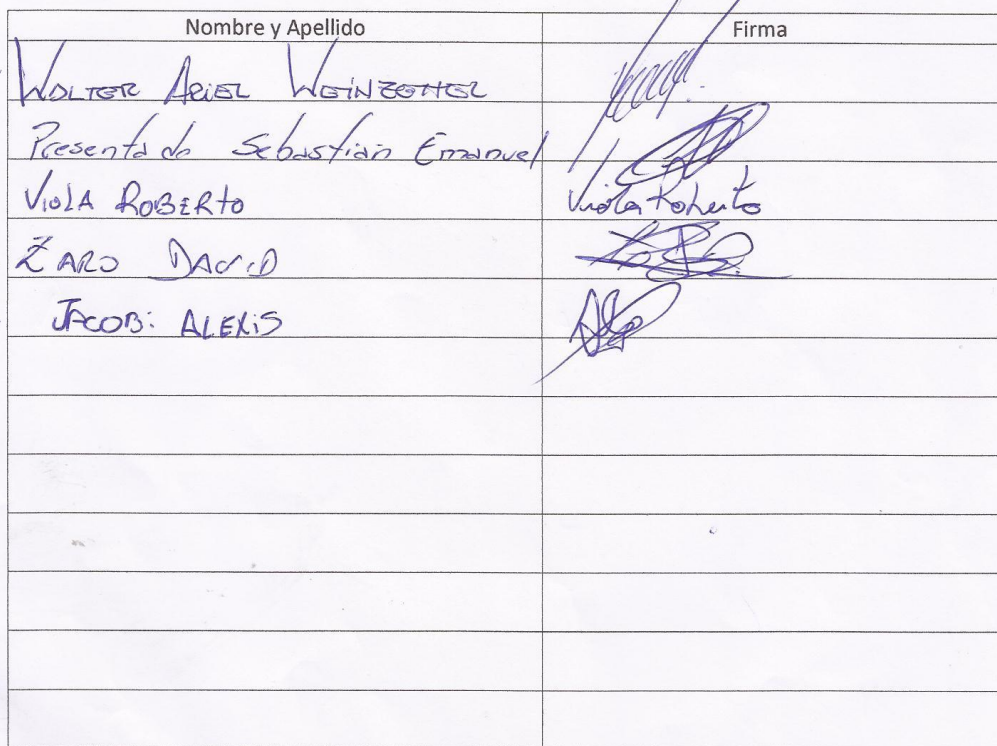 Nombre y Apellido Firma
WOLTER ARIEL
Presentado Sebastián Emanuel
VIOLA ROBERTO Viola Roberto
ZARO DAVID
JACOBI ALEXIS